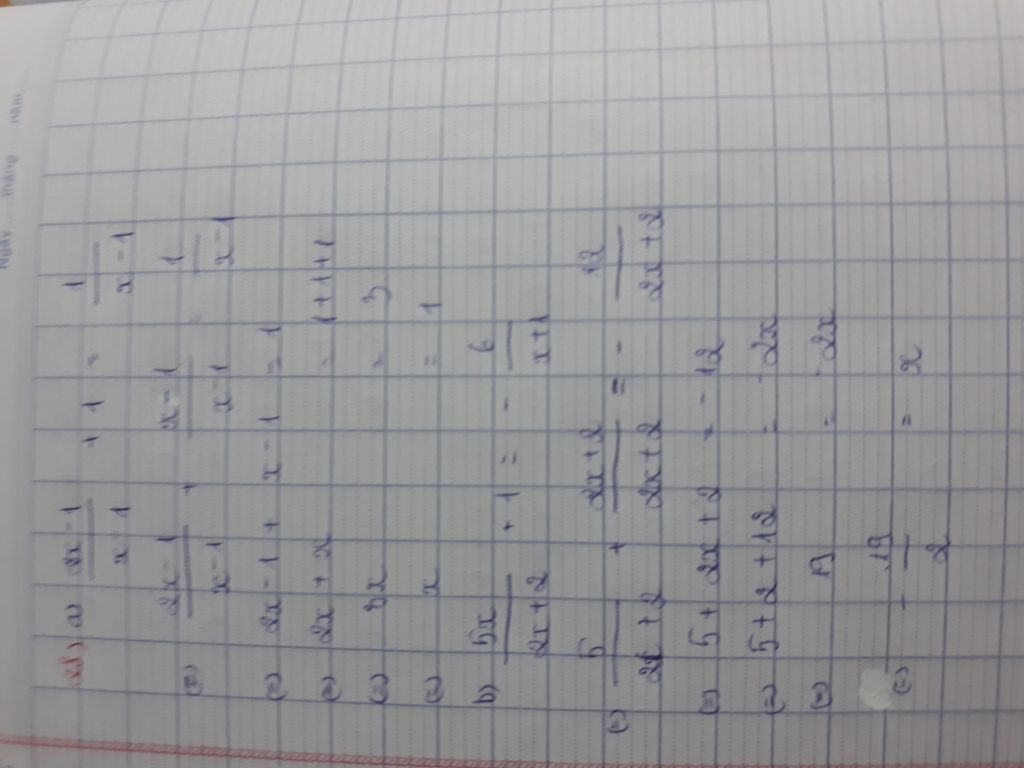 Ngày tháng năm
28) a) 2x-1/x-1 + 1 = 1/x-1
(=) 2x-1/x-1 + x-1/x-1 = 1/x-1
(=) 2x-1 + x-1 = 1
(=) 2x + x = 1+1+1
(=) 3x = 3
(=) x = 1
b) 5x/2x+2 + 1 = - 6/x+1
(=) 5/2x+2 + 2x+2/2x+2 = - 12/2x+2
(=) 5 + 2x + 2 = - 12
(=) 5+2+12 = -2x
(=) 19 = -2x
(=) - 19/2 = x